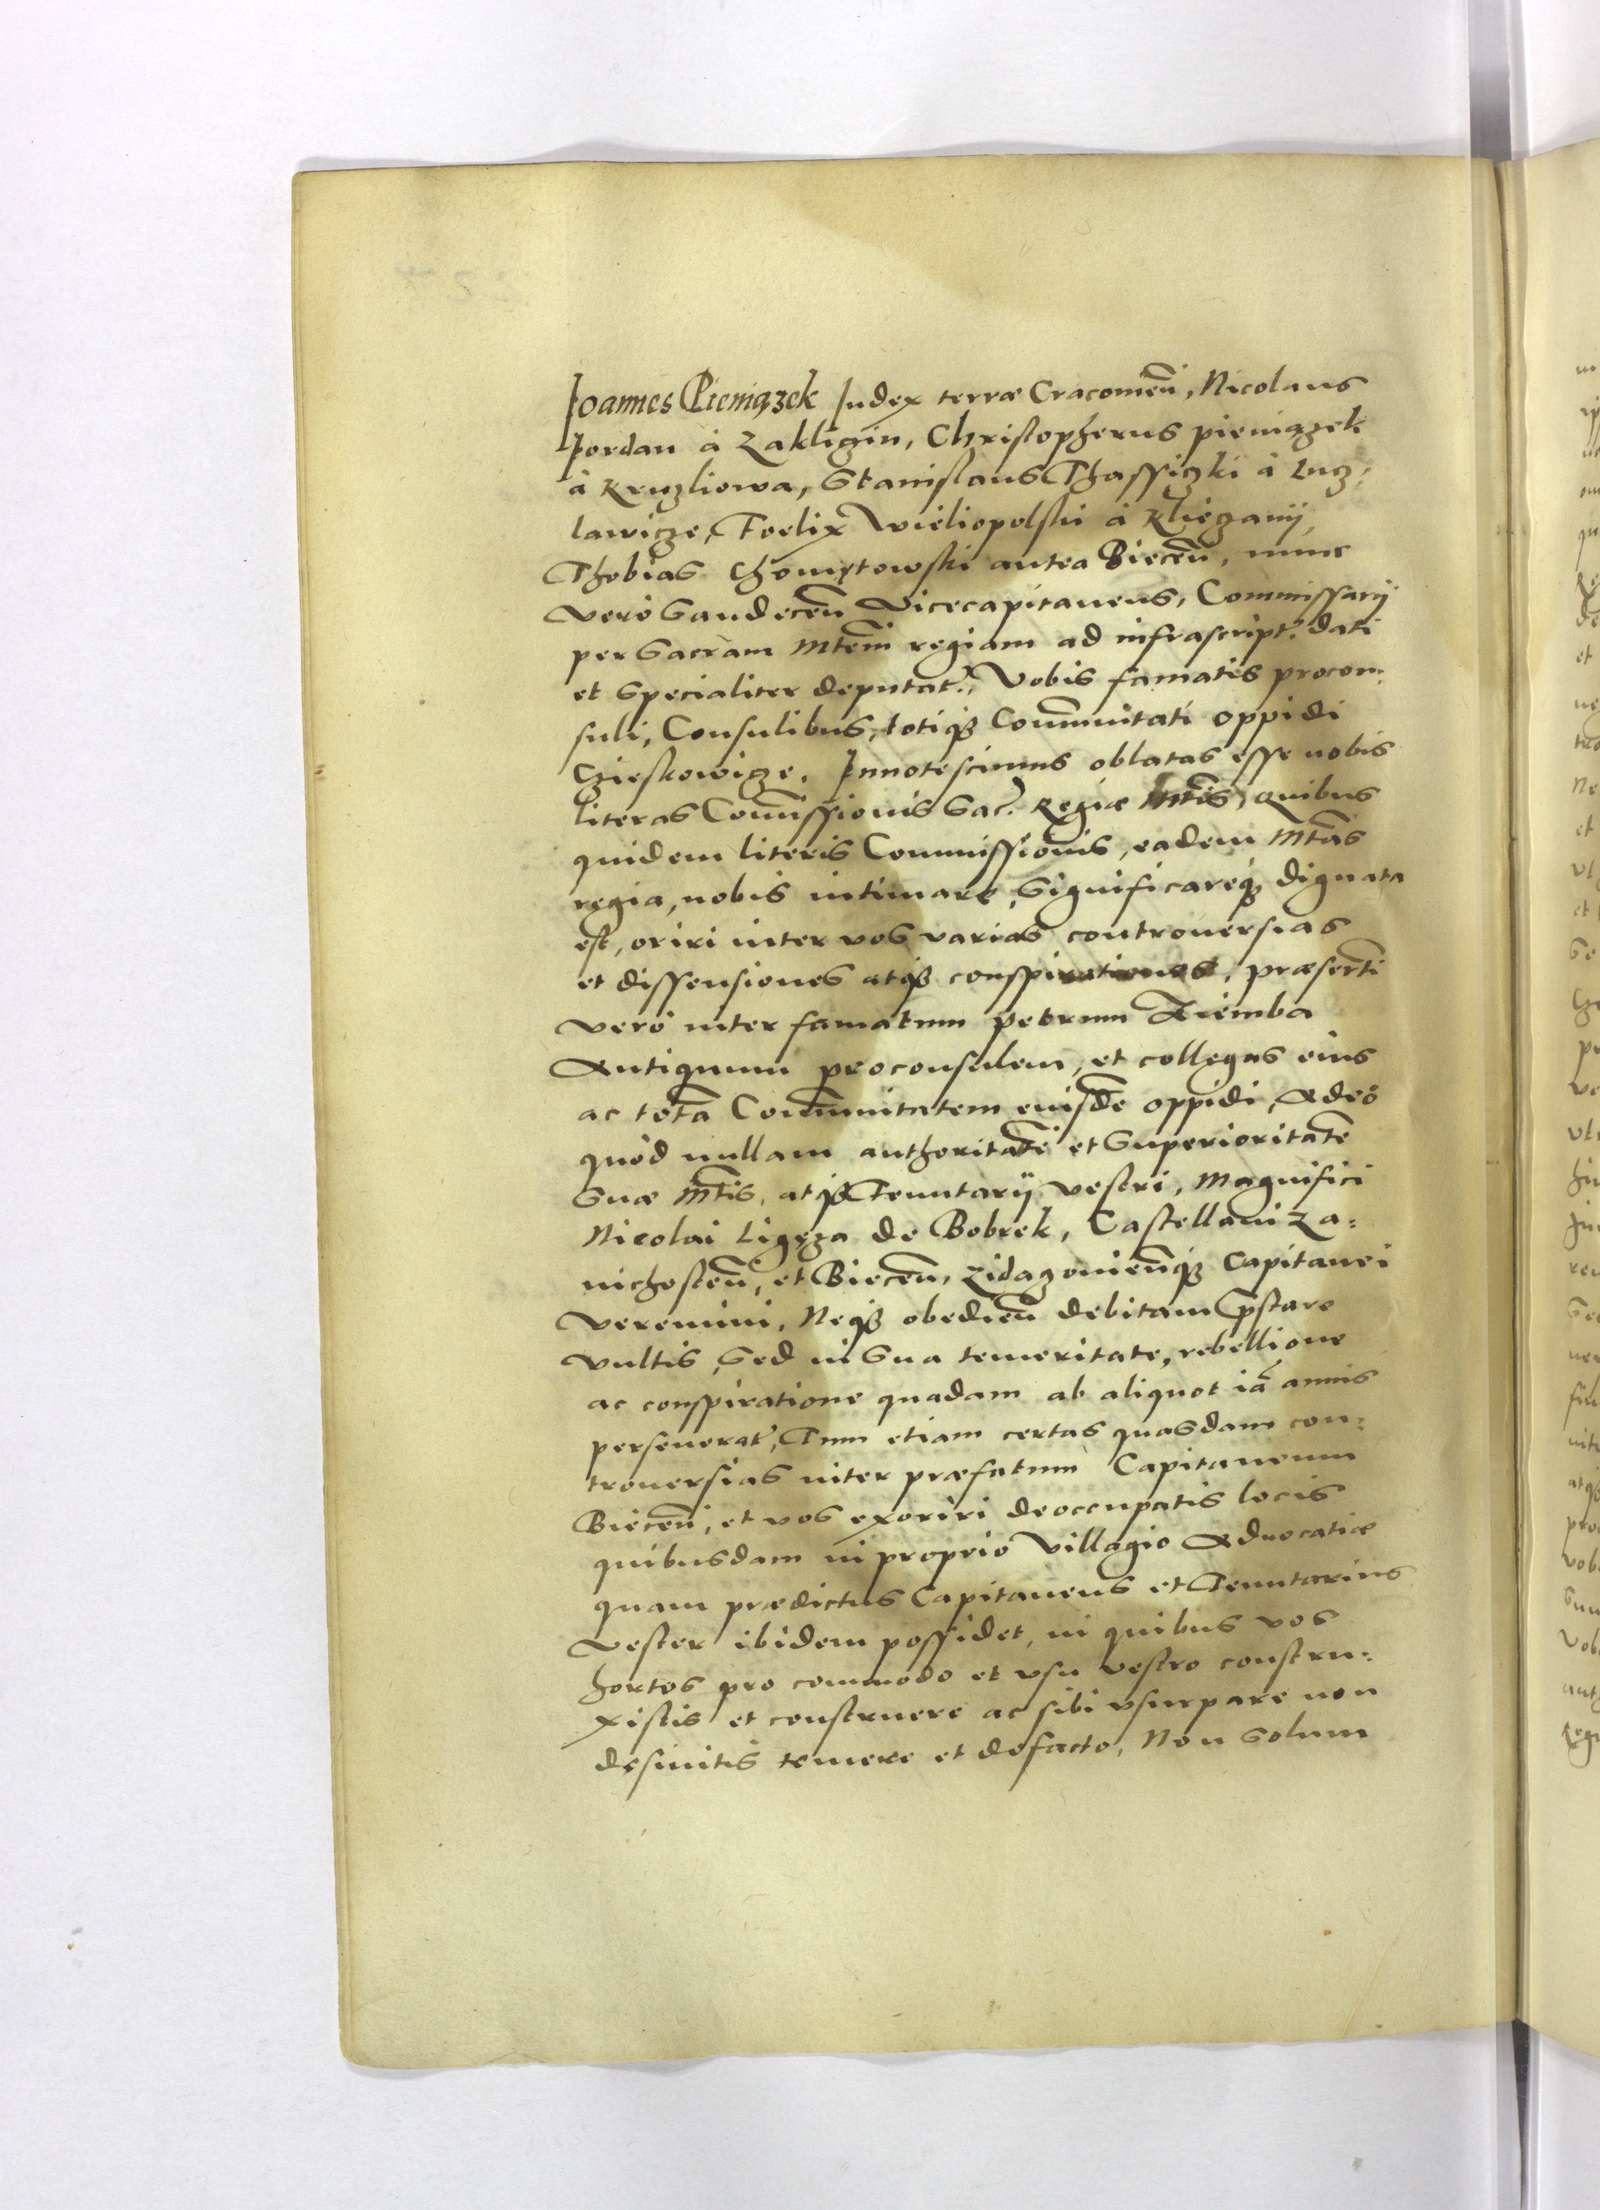 Joannes Pieniązek Judex terræ Cracouień, Nicolaus
Jordan à Zakliczin, Christopherus pieniązek
à Kruzliowa, Stanislaus Thassiczki à Lucz-
lawicze, Foelix Wieliopolski à Kliéczanÿ,
Thobias Chomętowski antea Biecēn, nunc
vero Sandecēn Vicecapitaneus, Commissarij
per Sacram Mtem regiam ad infrascript. dati
et specialiter deputat., Vobis famatis procon-
suli, Consulibus, totiqz Commūitati oppidi
Czieskowicze. Innotescimus oblatas esse nobis
literas Commissionis Sac. Regiæ Mtis, Quibus
quidem literis Commissionis, eadem Mtas
regia, nobis intimare, significareqz dignata
est, oriri inter vos varias controuersias
et dissensiones atqz conspirationes, præserti
vero inter famatum petrum Ziemba
Antiquum proconsulem, et collegas eius
ac totā Communitatem eiusdē oppidi, Adeo
quod nullam authoritatē et Superioritatē
Suæ Mtis, atqz Tenutarij vestri, Magnifici
Nicolai Ligęza de Bobrek, Castellani Za-
nichostēn, et Biecēn, Zidagouiēnqz Capitanei
veremini, Neqz obediēn debitam pstare
vultis, Sed in Sua temeritate, rebellione
ac conspiratione quadam ab aliquot iā annis
perseuerat, Tum etiam certas quasdam con-
trouersias inter præfatum Capitaneum
Biecēn, et vos exoriri de occupatis locis
quibusdam in proprio Villagio Aduocatiæ
quam prædictus Capitaneus et Tenutarius
vester ibidem possidet, in quibus vos
hortos pro commodo et vsu vestro constru-
xistis et construere ac sibi vsurpare non
desinitis temere et de facto, Non Solum